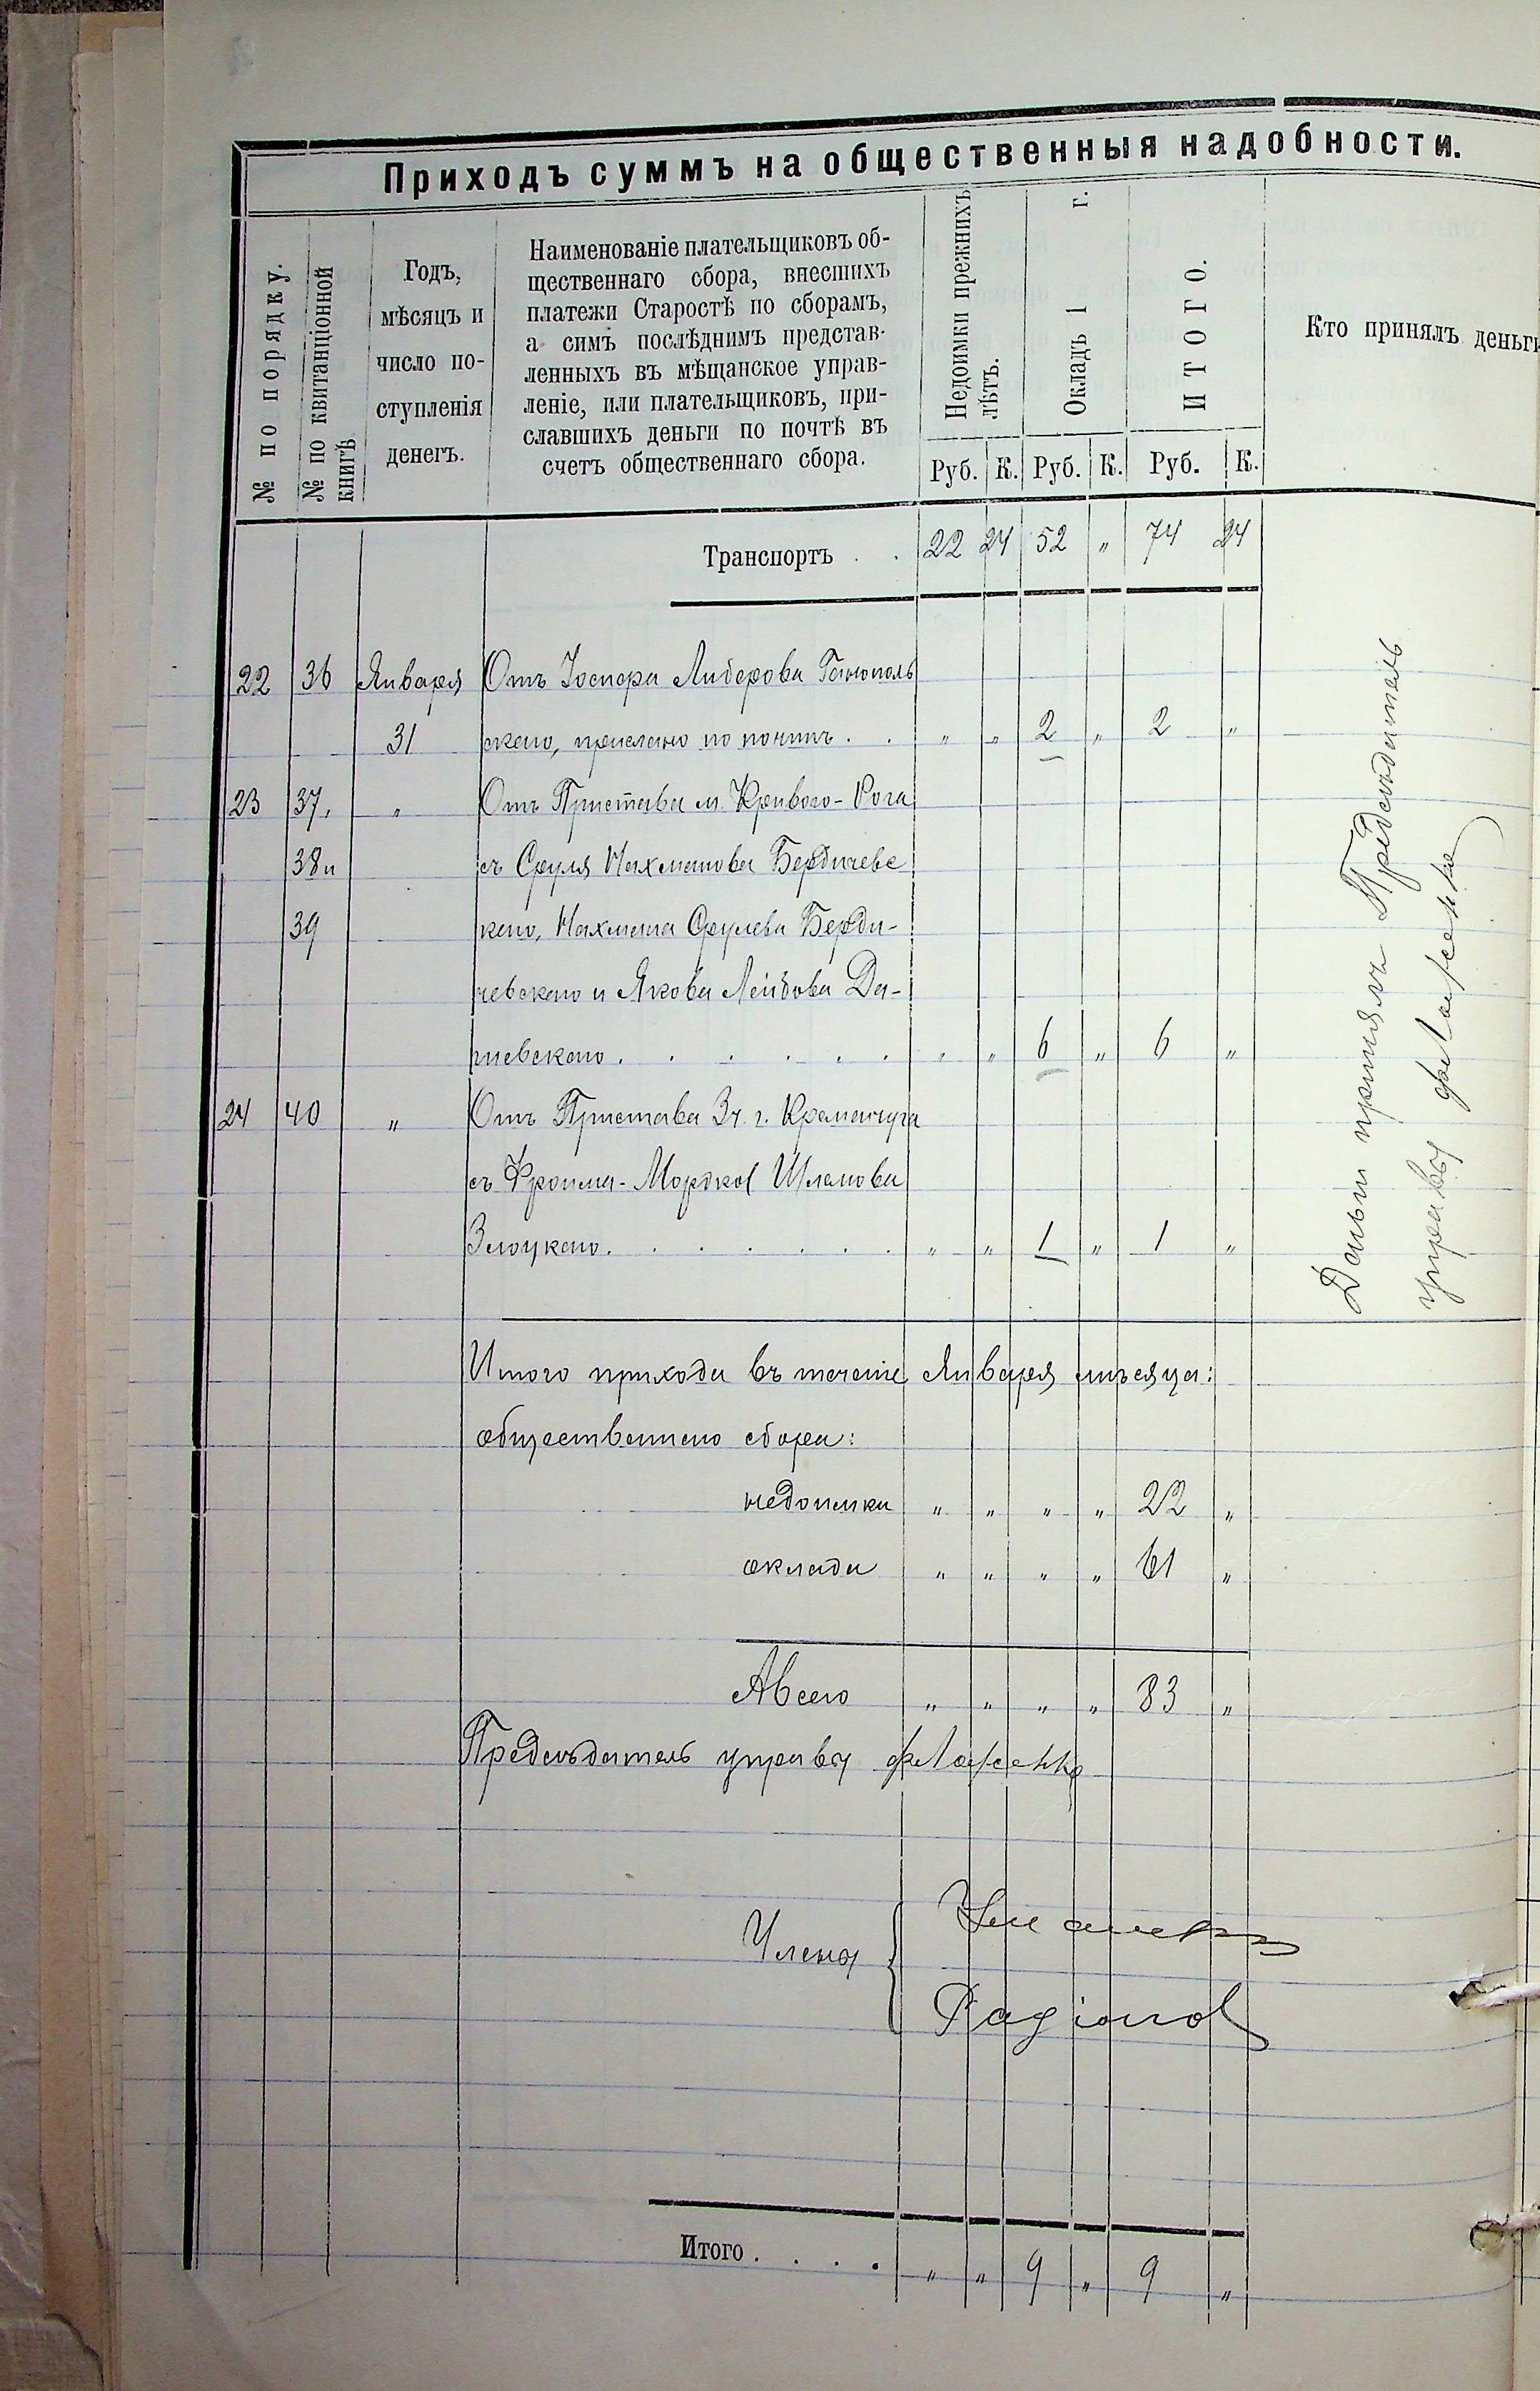 Приходъ суммъ на общественныя надобности.
№ по порядку.
№ по квитанціонной книгѣ
Годъ,
мѣсяцъ и
число по-
ступленія
денегъ.
Наименованіе плательщиковъ об-
щественнаго сбора, внесшихъ
платежи Старостѣ по сборамъ,
а симъ послѣднимъ представ-
ленныхъ въ мѣщанское управ-
леніе, или плательщиковъ, при-
славшихъ деньги по почтѣ въ
счетъ общественнаго сбора.
Недоимки прежнихъ
лѣтъ.
Окладъ 1 г.
ИТОГО.
Кто принялъ деньги
Руб. К. Руб. К. Руб. К.
Транспортъ . . 22 24 52 " 74 24
22 36 Января Отъ Іоспера Лидерова Ганополь
31 скаго, прислано по почтѣ . . " " 2 " 2 "
23 37, " Отъ Пристава м. Кривого-Рога
38 и съ Сруля Нахманова Бердичевс
39 каго, Нахмана Срулева Берди-
чевскаго и Якова Лейбова Да-
шевскаго . . . . . . " " 6 " 6 "
24 40 " Отъ Пристава 3 ч. г. Кременчуга
съ Фроима-Мордка Шлемова
Злоцкаго . . . . . . " " 1 " 1 "
Итого прихода въ теченіе Января мѣсяца:
общественнаго сбора:
недоимки " " " " 22 "
оклада " " " " 61 "
А всего " " " " 83 "
Предсѣдатель управы
Члены
Итого . . . . " " 9 " 9 "
Деньги принялъ Предсѣдатель
управы